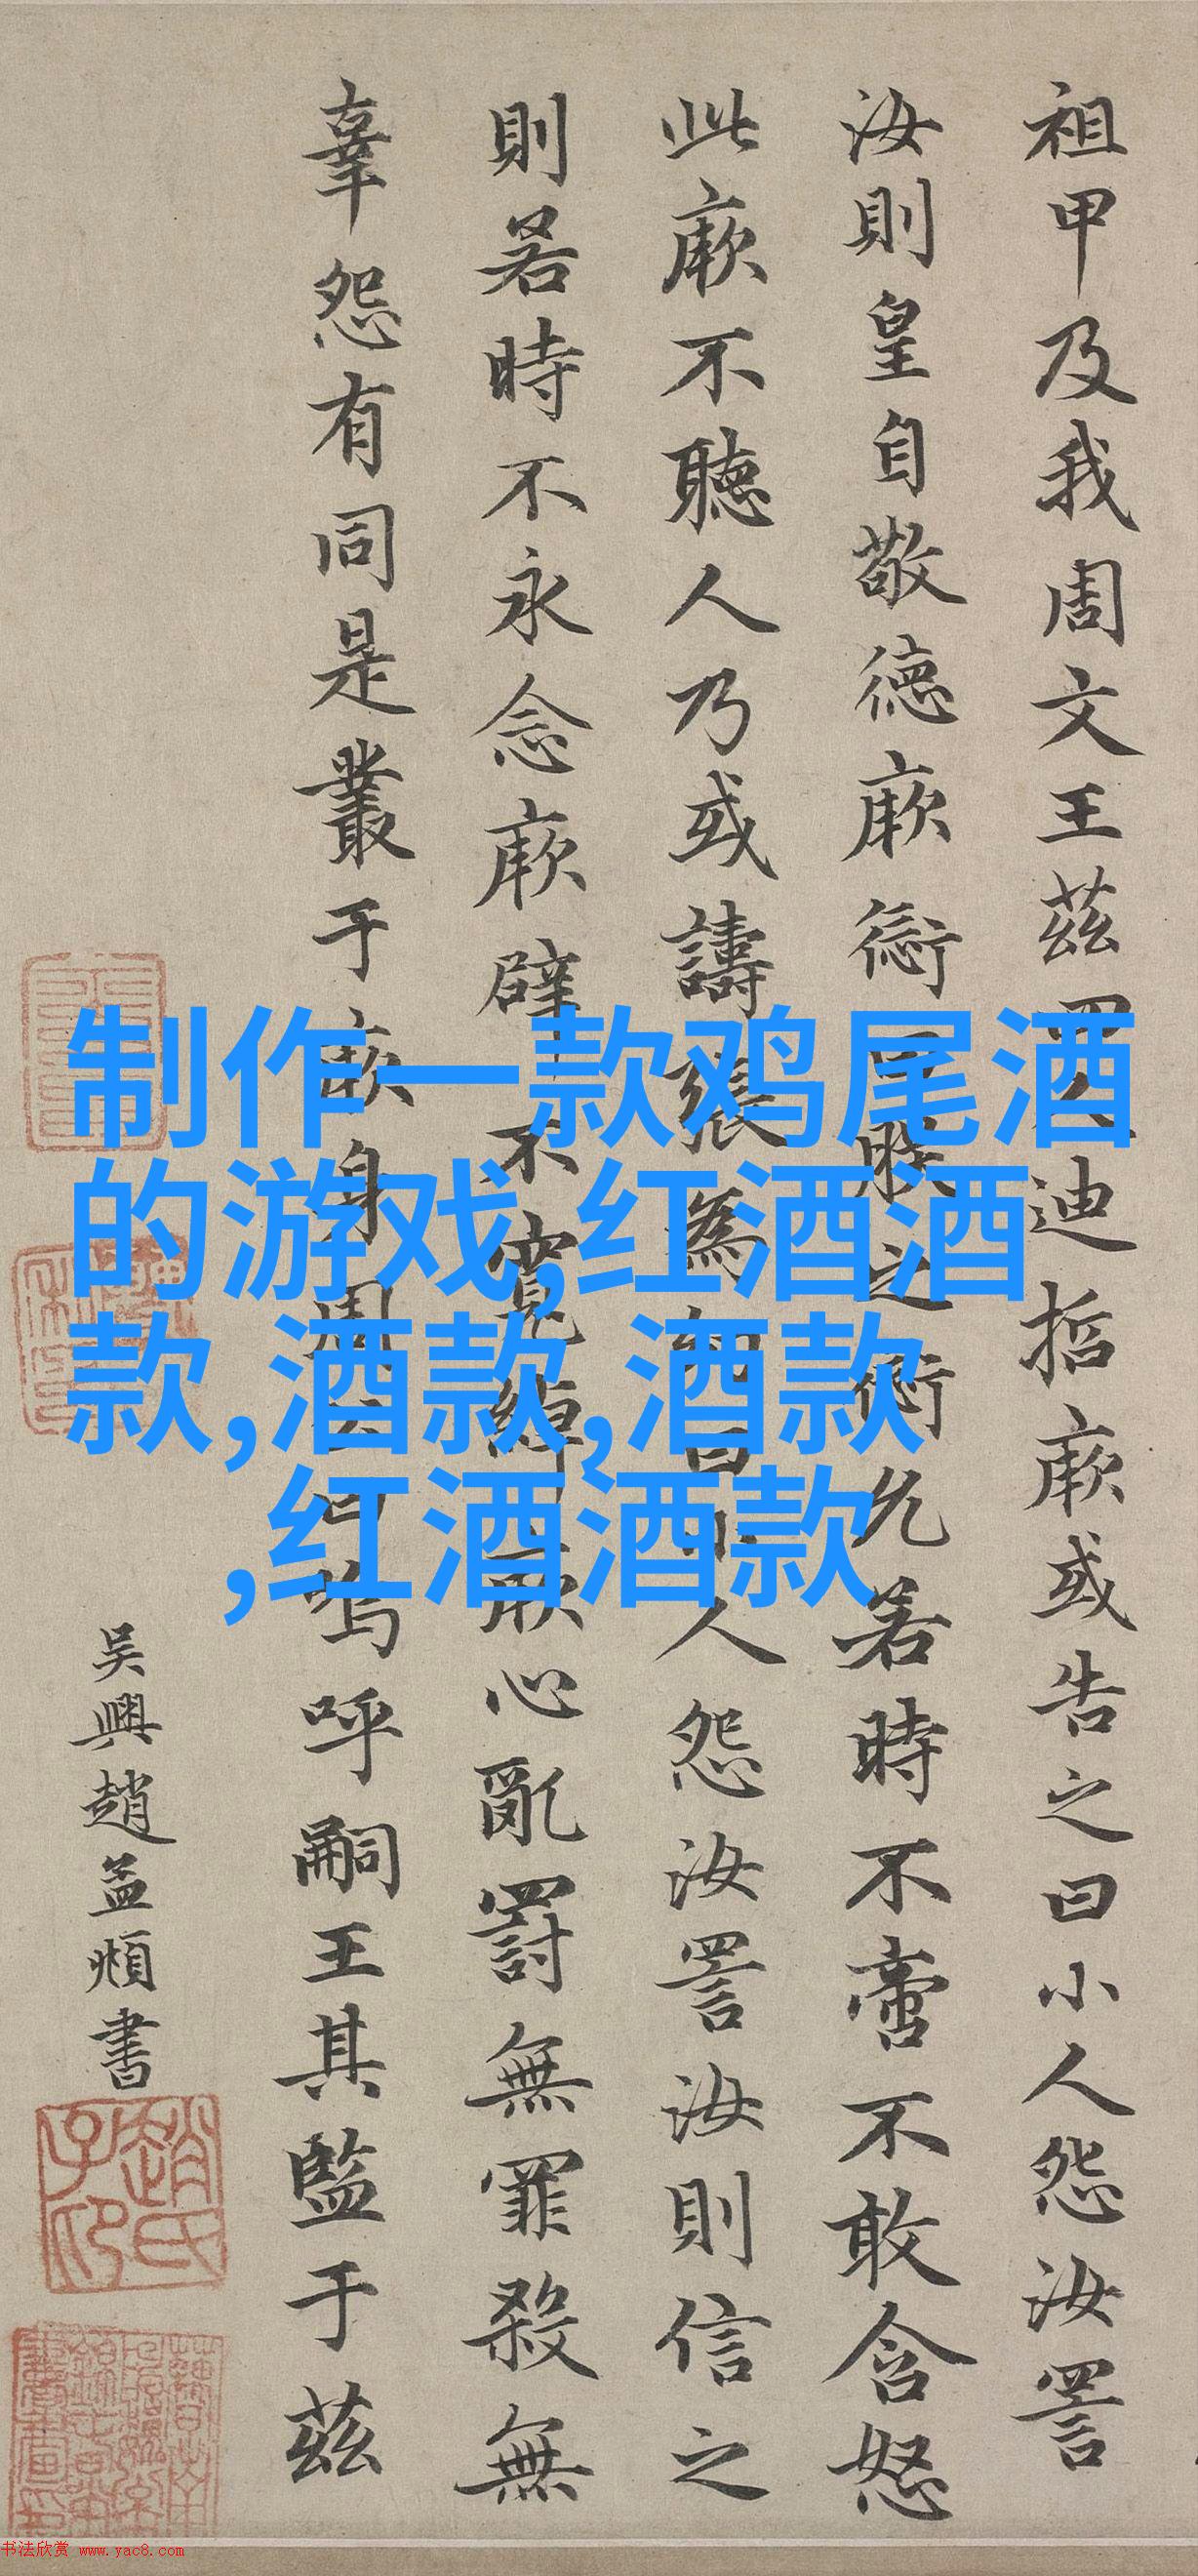 祖甲及我周文王茲四人迪哲厥或告之曰小人怨汝詈
汝則皇自敬德厥愆曰朕之愆允若時不啻不敢含怒
此厥不聽人乃或譸張為幻曰小人怨汝詈汝則信之
則若時不永念厥辟不寬綽厥心亂罰無罪殺無
辜怨有同是叢于厥身周公曰嗚呼嗣王其監于茲
吴興趙孟頫書
趙氏子昂
制作一款鸡尾酒
的游戏,红酒酒
款,酒款,酒款
,红酒酒款
书法欣赏 www.yac8.com